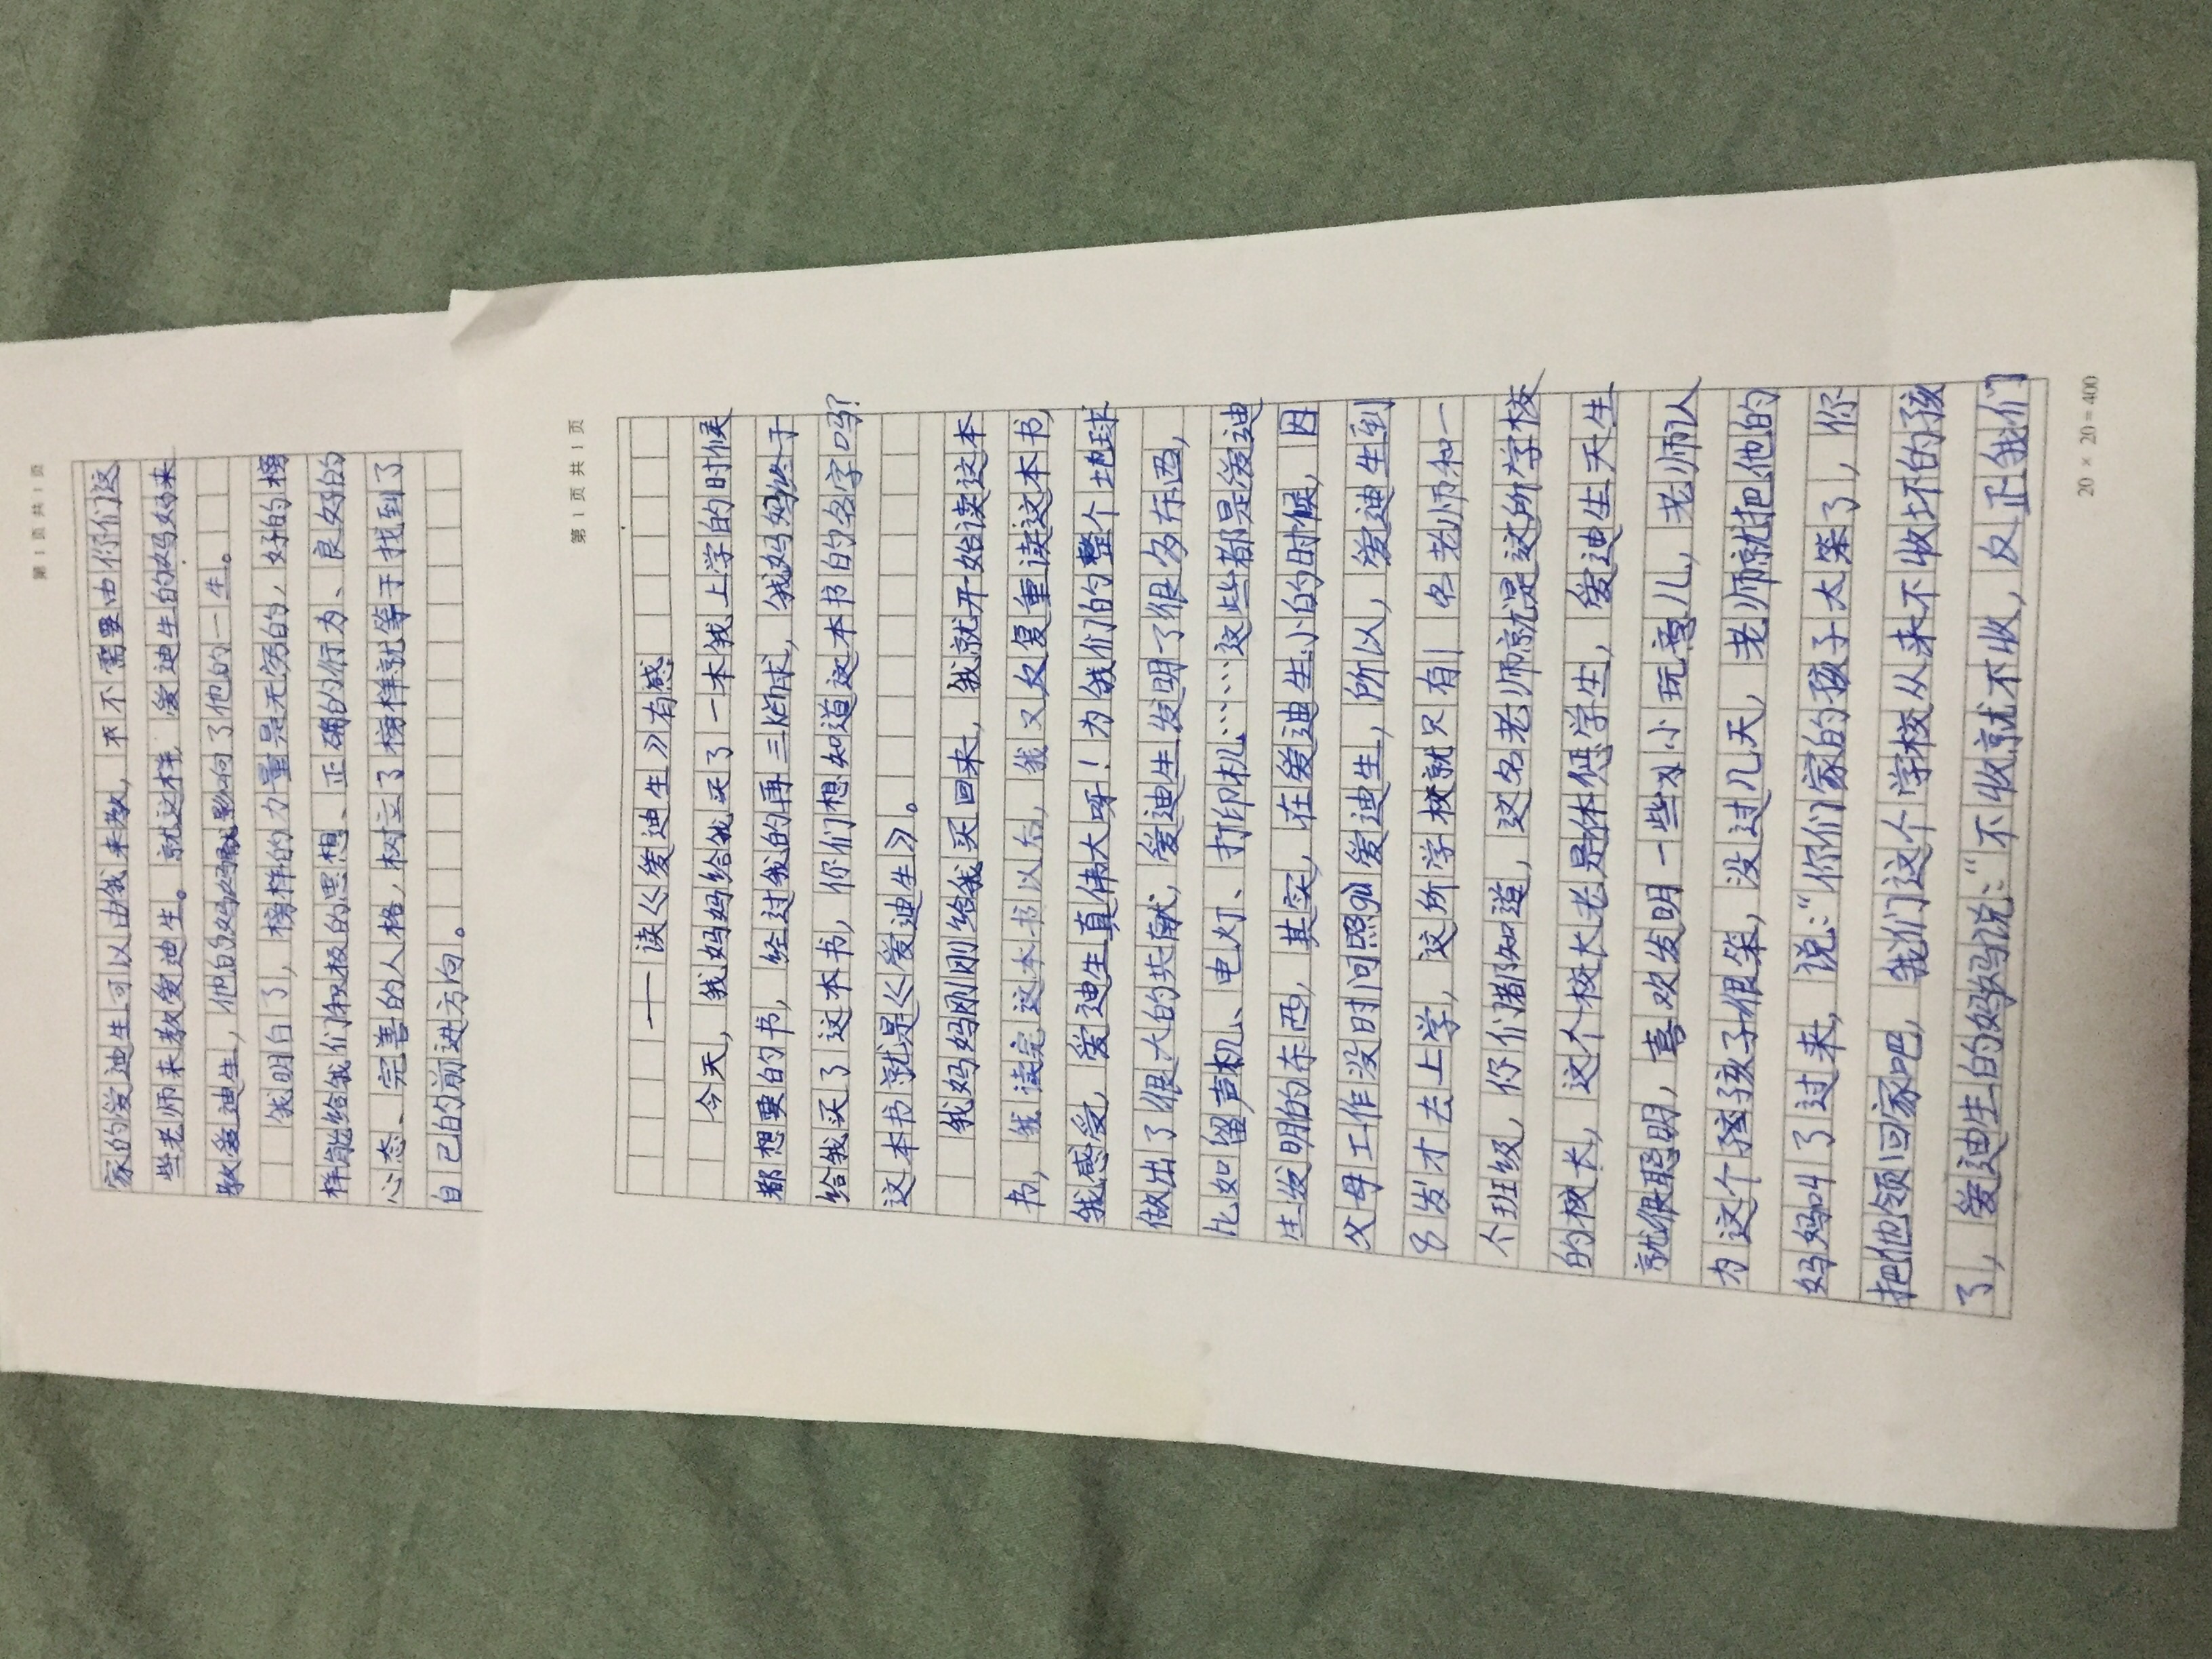 第 1 页 共 1 页
——读《爱迪生》有感
今天,我妈妈给我买了一本我上学的时候
都想要的书,经过我的再三恳求,我妈妈终于
给我买了这本书,你们想知道这本书的名字吗?
这本书就是《爱迪生》。
我妈妈刚刚给我买回来,我就开始读这本
书,我读完这本书以后,我又反复重读这本书,
我感受,爱迪生真伟大呀!为我们的整个地球
做出了很大的共献,爱迪生发明了很多东西,
比如留声机、电灯、打印机……这些都是爱迪
生发明的东西,其实,在爱迪生小的时候,因
父母工作没时间照 爱迪生,所以,爱迪生到
8岁才去上学,这所学校就只有1名老师和一
个班级,你们都知道,这名老师就是这所学校
的校长,这个校长老是体 学生,爱迪生天生
就很聪明,喜欢发明一些小玩意儿,老师认
为这个孩子很笨,没过几天,老师就把他的
妈妈叫了过来,说:“你们家的孩子太笨了,你
把他领回家吧,我们这个学校从来不收坏的孩
了,爱迪生的妈妈说:“不收就不收,反正我们
20 × 20 = 400
第 1 页 共 1 页
家的爱迪生可以由我来教,不需要由你们这
些老师来教爱迪生。就这样,爱迪生的妈妈来
教爱迪生,他的妈妈就影响了他的一生。
我明白了,榜样的力量是无穷的,好的榜
样能给我们积极的思想、正确的行为、良好的
心态、完善的人格,树立了榜样就等于找到了
自己的前进方向。